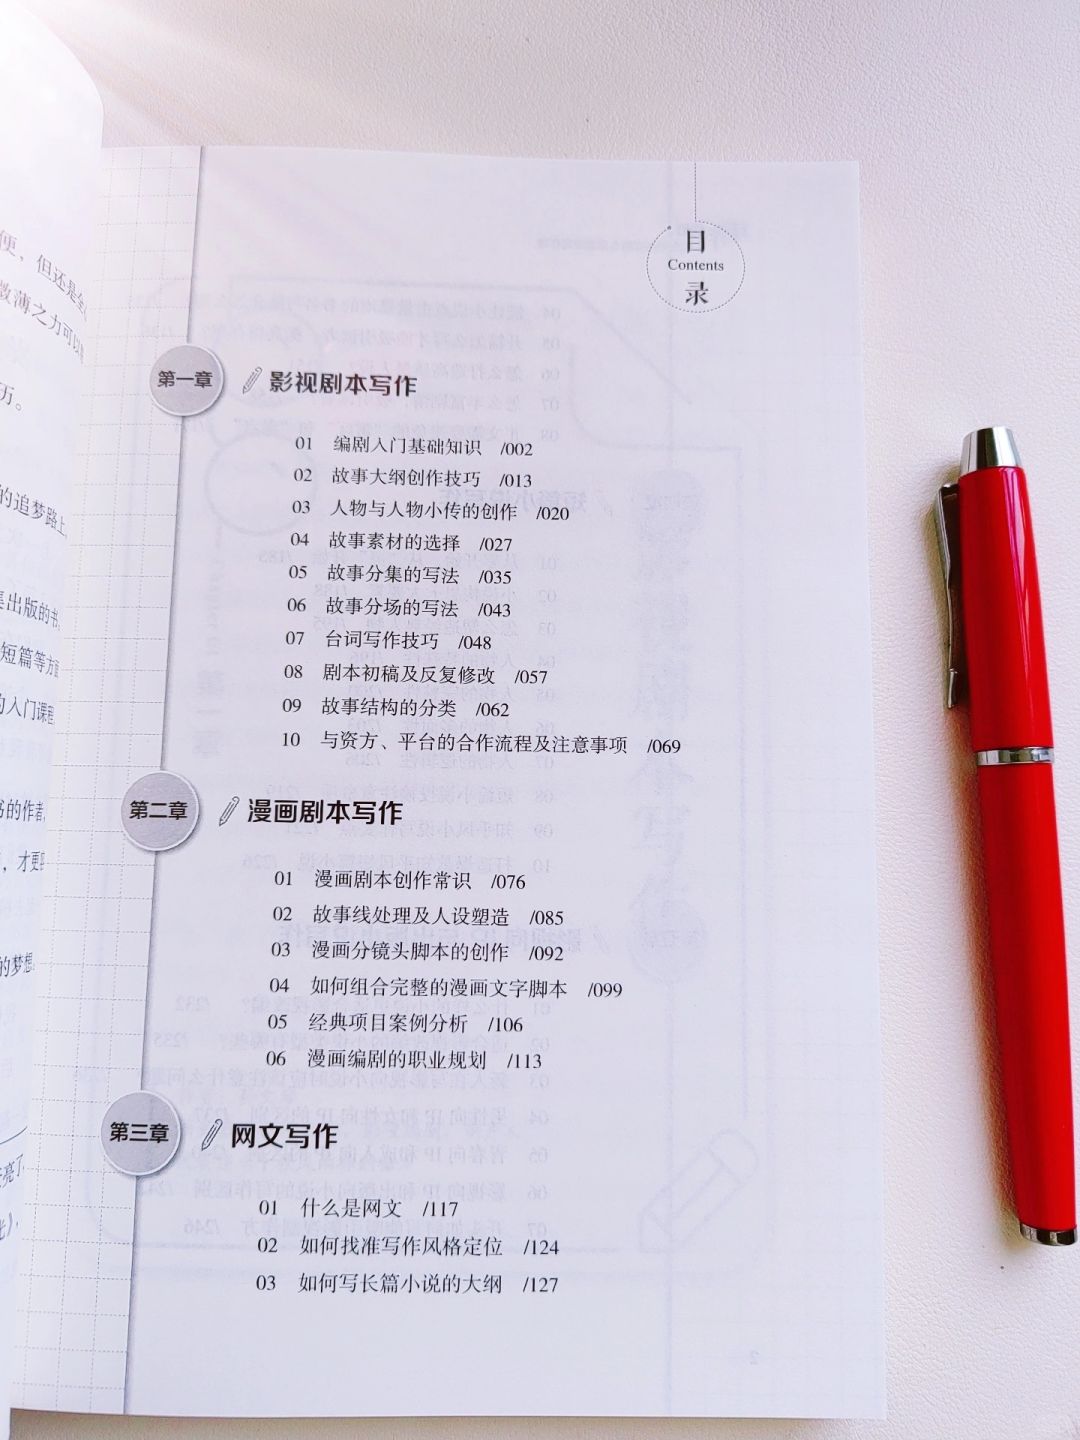 便，但还是
微薄之力可以
历。
的追梦路上
集出版的书
短篇等方面
的入门课程
书的作者
，才更
的梦想
目
Contents
录
第一章 影视剧本写作
01 编剧入门基础知识 /002
02 故事大纲创作技巧 /013
03 人物与人物小传的创作 /020
04 故事素材的选择 /027
05 故事分集的写法 /035
06 故事分场的写法 /043
07 台词写作技巧 /048
08 剧本初稿及反复修改 /057
09 故事结构的分类 /062
10 与资方、平台的合作流程及注意事项 /069
第二章 漫画剧本写作
01 漫画剧本创作常识 /076
02 故事线处理及人设塑造 /085
03 漫画分镜头脚本的创作 /092
04 如何组合完整的漫画文字脚本 /099
05 经典项目案例分析 /106
06 漫画编剧的职业规划 /113
第三章 网文写作
01 什么是网文 /117
02 如何找准写作风格定位 /124
03 如何写长篇小说的大纲 /127